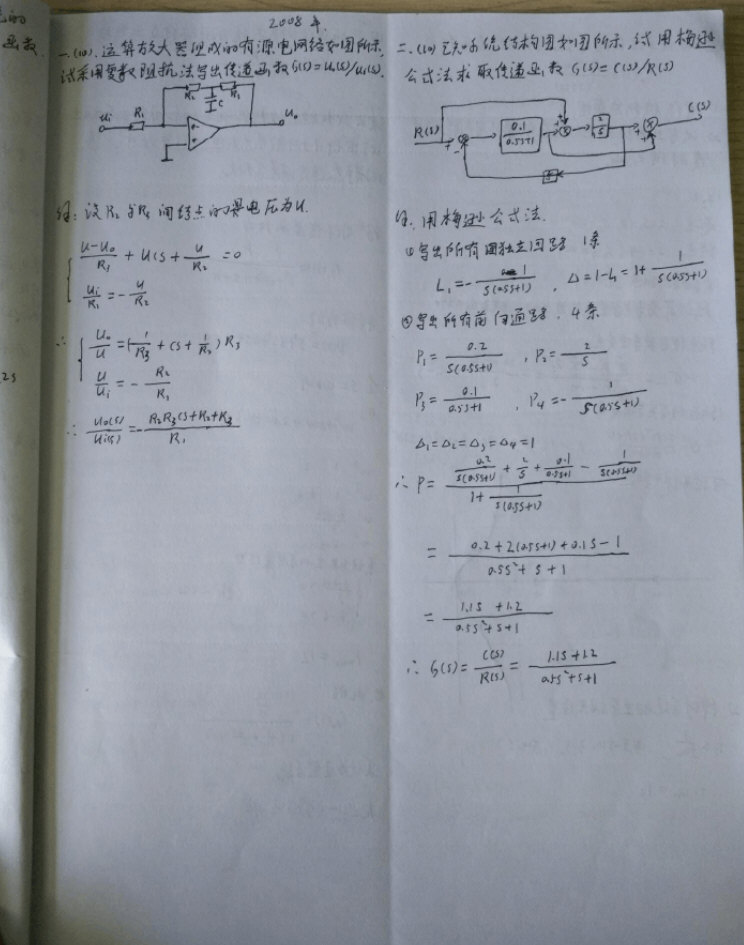 2008年.
一.(10). 运算放大器组成的有源电网络如图所示,
试采用复数阻抗法写出传递函数 G(s)=U₀(s)/Ui(s).
R₂
C
Ui
R₁
U₀
解: 设R₂与R₃间结点的 电压为U.
(U-U₀)/R₃ + UCS + U/R₂ = 0
Ui/R₁ = -U/R₂
∴ U₀/U = (1/R₃ + CS + 1/R₂) R₃
U/Ui = -R₂/R₁
∴ U₀(s)/Ui(s) = -(R₂R₃CS+R₂+R₃)/R₁
二.(10) 已知系统结构图如图所示, 试用梅逊
公式法求取传递函数 G(s)=C(s)/R(s)
C(s)
R(s)
0.1/(0.5S+1)
2/S
解. 用梅逊公式法.
①写出所有 独立回路 1条
L₁=-1/(S(0.5S+1)) , Δ=1-L₁=1+1/(S(0.5S+1))
②写出所有前向通路. 4条
P₁=0.2/(S(0.5S+1)) , P₂=2/S
P₃=0.1/(0.5S+1) , P₄=-1/(S(0.5S+1))
Δ₁=Δ₂=Δ₃=Δ₄=1
∴ P=(0.2/(S(0.5S+1)) + 2/S + 0.1/(0.5S+1) - 1/(S(0.5S+1)))/(1+1/(S(0.5S+1)))
= (0.2+2(0.5S+1)+0.1S-1)/(0.5S²+S+1)
= (1.1S+1.2)/(0.5S²+S+1)
∴ G(s)=C(s)/R(s)=(1.1S+1.2)/(0.5S²+S+1)